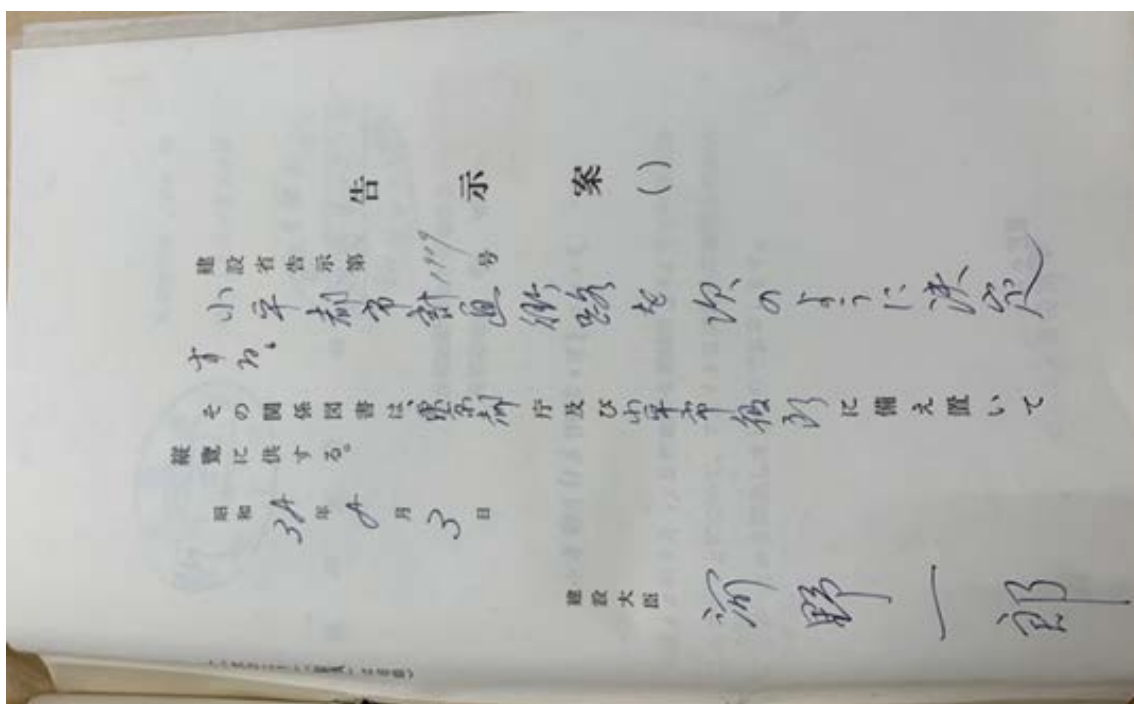 告示案( )
建設省告示第 号
小平都市計画街路を次のように決定
する。
その関係図書は、東京都庁及び小平市役所に備え置いて
縦覧に供する。
昭和38年8月3日
建設大臣 河野一郎